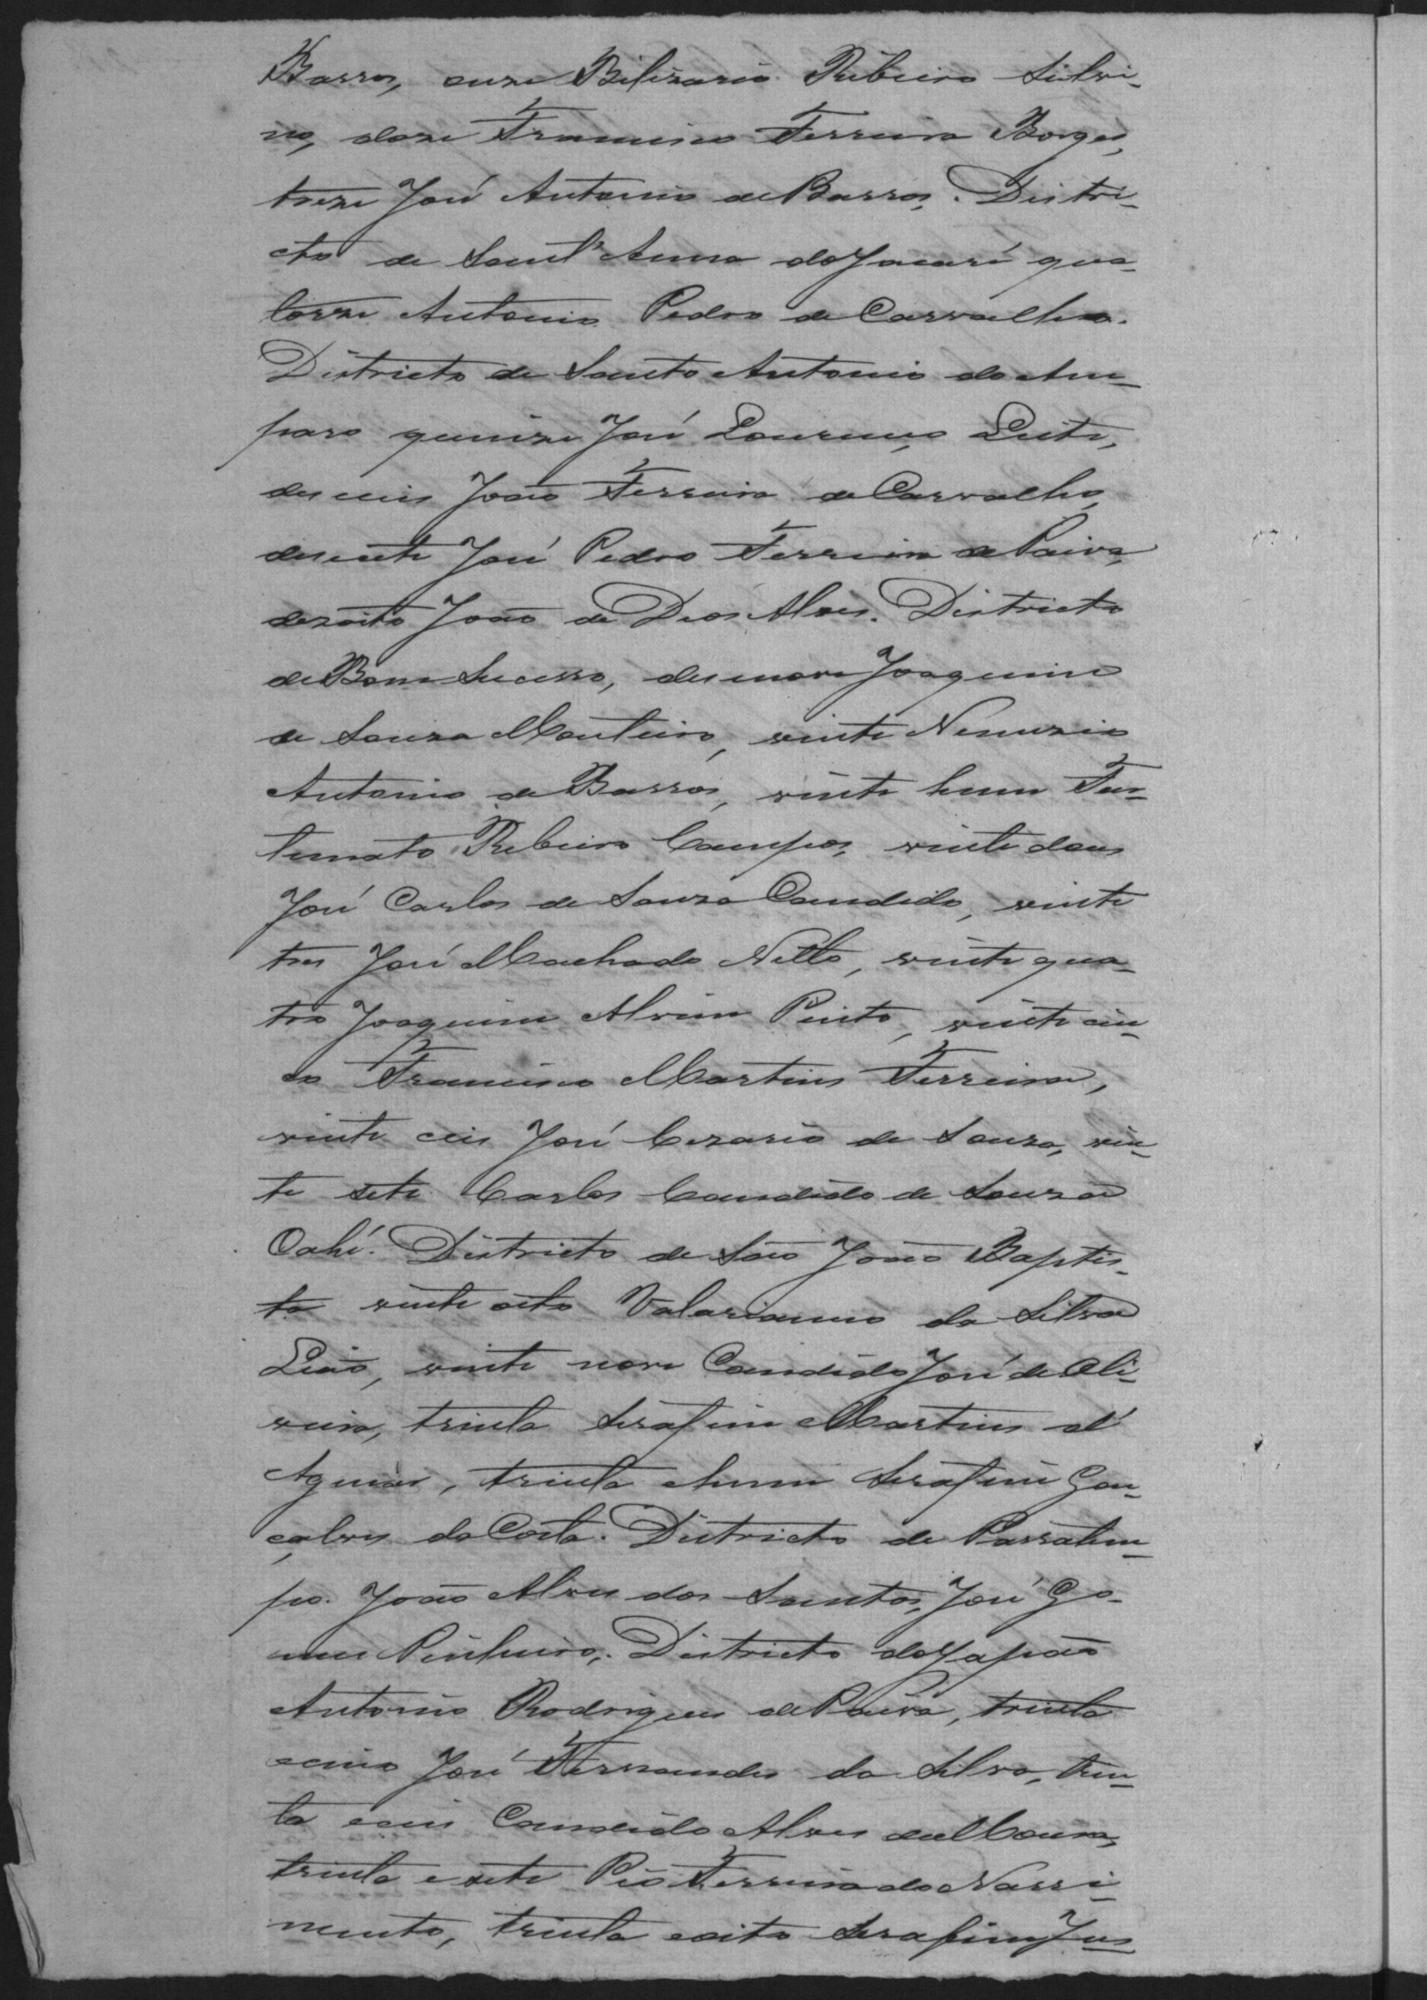 Barros, onze Bilizario Ribeiro Silvi-
no, doze Francisco Ferreira Borges,
treze José Antonio de Barros. Distri-
cto de Sant'Anna do Jacaré qua-
torze Antonio Pedro de Carvalho.
Districto de Santo Antonio do Am-
paro quinze José Lourenço Leite,
deseceis João Ferreira de Carvalho,
desecete José Pedro Ferreira de Paiva,
dezoito João de Deos Alves. Districto
de Bom Sucesso, desenove Joaquim
de Souza Monteiro, vinte Nemezio
Antonio de Barros, vinte hum For-
tunato Ribeiro Campos, vinte dous
José Carlos de Souza Candido, vinte
tres José Machado Netto, vinte qua-
tro Joaquim Alvim Pinto, vinte cin-
co Francisco Martins Ferreira,
vinte ceis José Cezario de Souza, vin-
te sete Carlos Candido de Souza
Oahi. Districto de São João Baptis-
ta vinte oito Valarianno da Silva
Leão, vinte nove Candido José de Oli-
veira, trinta Serafim Martins d'
Aguiar, trinta ehum Serafim Gon-
çalves da Costa. Districto de Passatem-
po. João Alves dos Santos, José Go-
mes Pinheiro,. Districto do Japão
Antonio Rodrigues de Paiva, trinta
ecinco José Fernandes da Silva, trin-
ta eceis Candido Alves de Moura,
trinta e sete Pio Ferreira do Nassi-
mento, trinta eoito Serafim Jus-